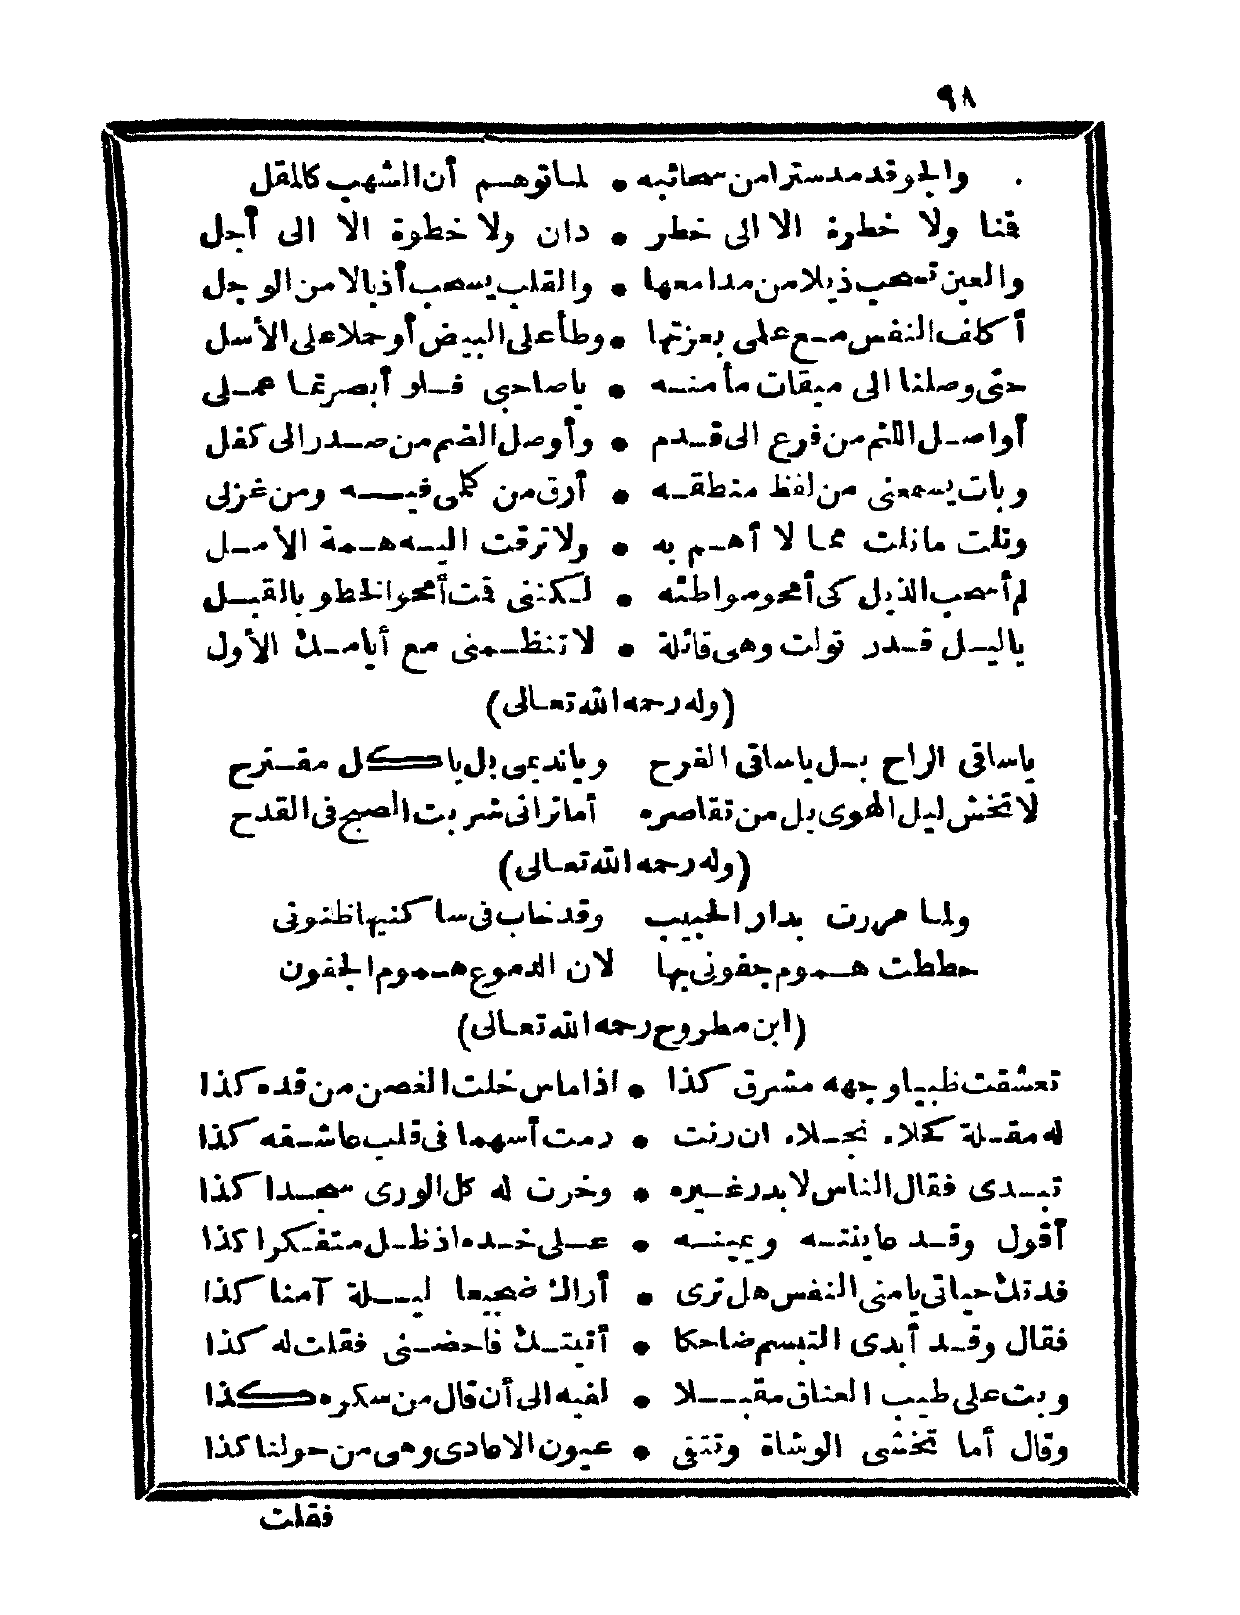 ٩٨
والجو قد مد سترا من سحائبه • لما توهم أن الشهب كالمقل
قنا ولا خطرة الا الى خطر • دان ولا خطوة الا الى أجل
والعين تسحب ذيلا من مدامعها • والقلب يسحب أذيالا من الوجل
أكلف النفس مع علمى بعزتها • وطأ على البيض أو حملا على الأسل
حتى وصلنا الى ميقات مأمنه • يا صاحبى فلو أبصرتما عملى
أواصل اللثم من فرع الى قدم • وأوصل الضم من صدر الى كفل
وبات يسمعنى من لفظ منطقه • أرق من كلمى فيه ومن غزلى
ونلت مانلت مما لا أهم به • ولا ترقت اليه همة الأمل
لم أسحب الذيل كى أمحو مواطئه • لكننى قت أمحو الخطو بالقبل
يا ليل قد تولت وهى قائلة • لا تنظمنى مع أيامك الأول
(وله رحمه الله تعالى)
يا ساقى الراح بل يا ساقى الفرح ويا نديمى بل يا كل مقترح
لا تخش ليل الهوى بل من تقاصره أما ترانى شربت الصبح فى القدح
(وله رحمه الله تعالى)
ولما مررت بدار الحبيب وقد خاب فى ساكنيها ظنونى
حططت هموم جفونى بها لان الدموع هموم الجفون
(ابن مطروح رحمه الله تعالى)
تعشقت ظبيا وجهه مشرق كذا • اذا ماس خلت الغصن من قده كذا
له مقلة كحلاء نجلاء ان رنت • رمت أسهما فى قلب عاشقه كذا
تبدى فقال الناس لا بدر غيره • وخرت له كل الورى سجدا كذا
أقول وقد عاينته ويمينه • على خده اذ ظل متفكرا كذا
فدتك حياتى يا منى النفس هل ترى • أراك ضجيعا ليلة آمنا كذا
فقال وقد أبدى التبسم ضاحكا • أتيتك فاحضنى فقلت له كذا
وبت على طيب العناق مقبلا • لفيه الى أن قال من سكره كذا
وقال أما تخشى الوشاة وتتقى • عيون الاعادى وهى من حولنا كذا
فقلت